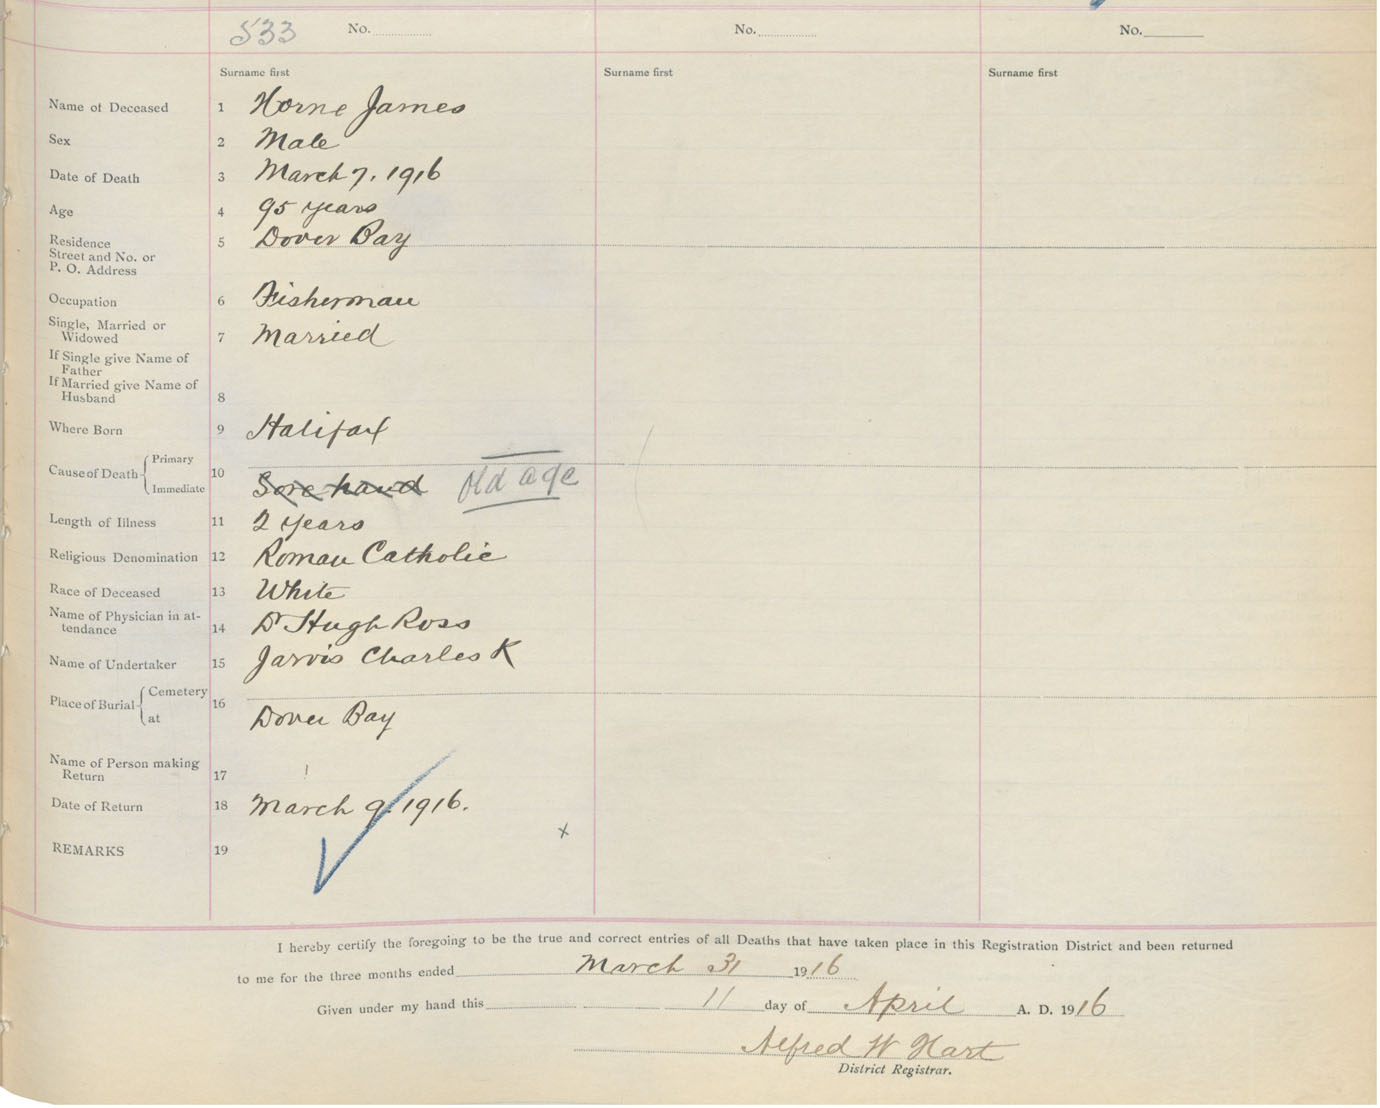 533 No. No. No.
Surname first Surname first Surname first
Name of Deceased 1 Horne James
Sex 2 Male
Date of Death 3 March 7, 1916
Age 4 95 years
Residence
Street and No. or
P. O. Address 5 Dover Bay
Occupation 6 Fisherman
Single, Married or
Widowed 7 Married
If Single give Name of
Father
If Married give Name of
Husband 8
Where Born 9 Halifax
Cause of Death Primary
Immediate 10 Sore hand Old age
Length of Illness 11 2 years
Religious Denomination 12 Roman Catholic
Race of Deceased 13 White
Name of Physician in at-
tendance 14 Dr Hugh Ross
Name of Undertaker 15 Jarvis Charles K
Place of Burial Cemetery
at 16 Dover Bay
Name of Person making
Return 17
Date of Return 18 March 9. 1916.
REMARKS 19
x
I hereby certify the foregoing to be the true and correct entries of all Deaths that have taken place in this Registration District and been returned
to me for the three months ended March 31 1916
Given under my hand this 11 day of April A. D. 1916
Alfred W Hart
District Registrar.